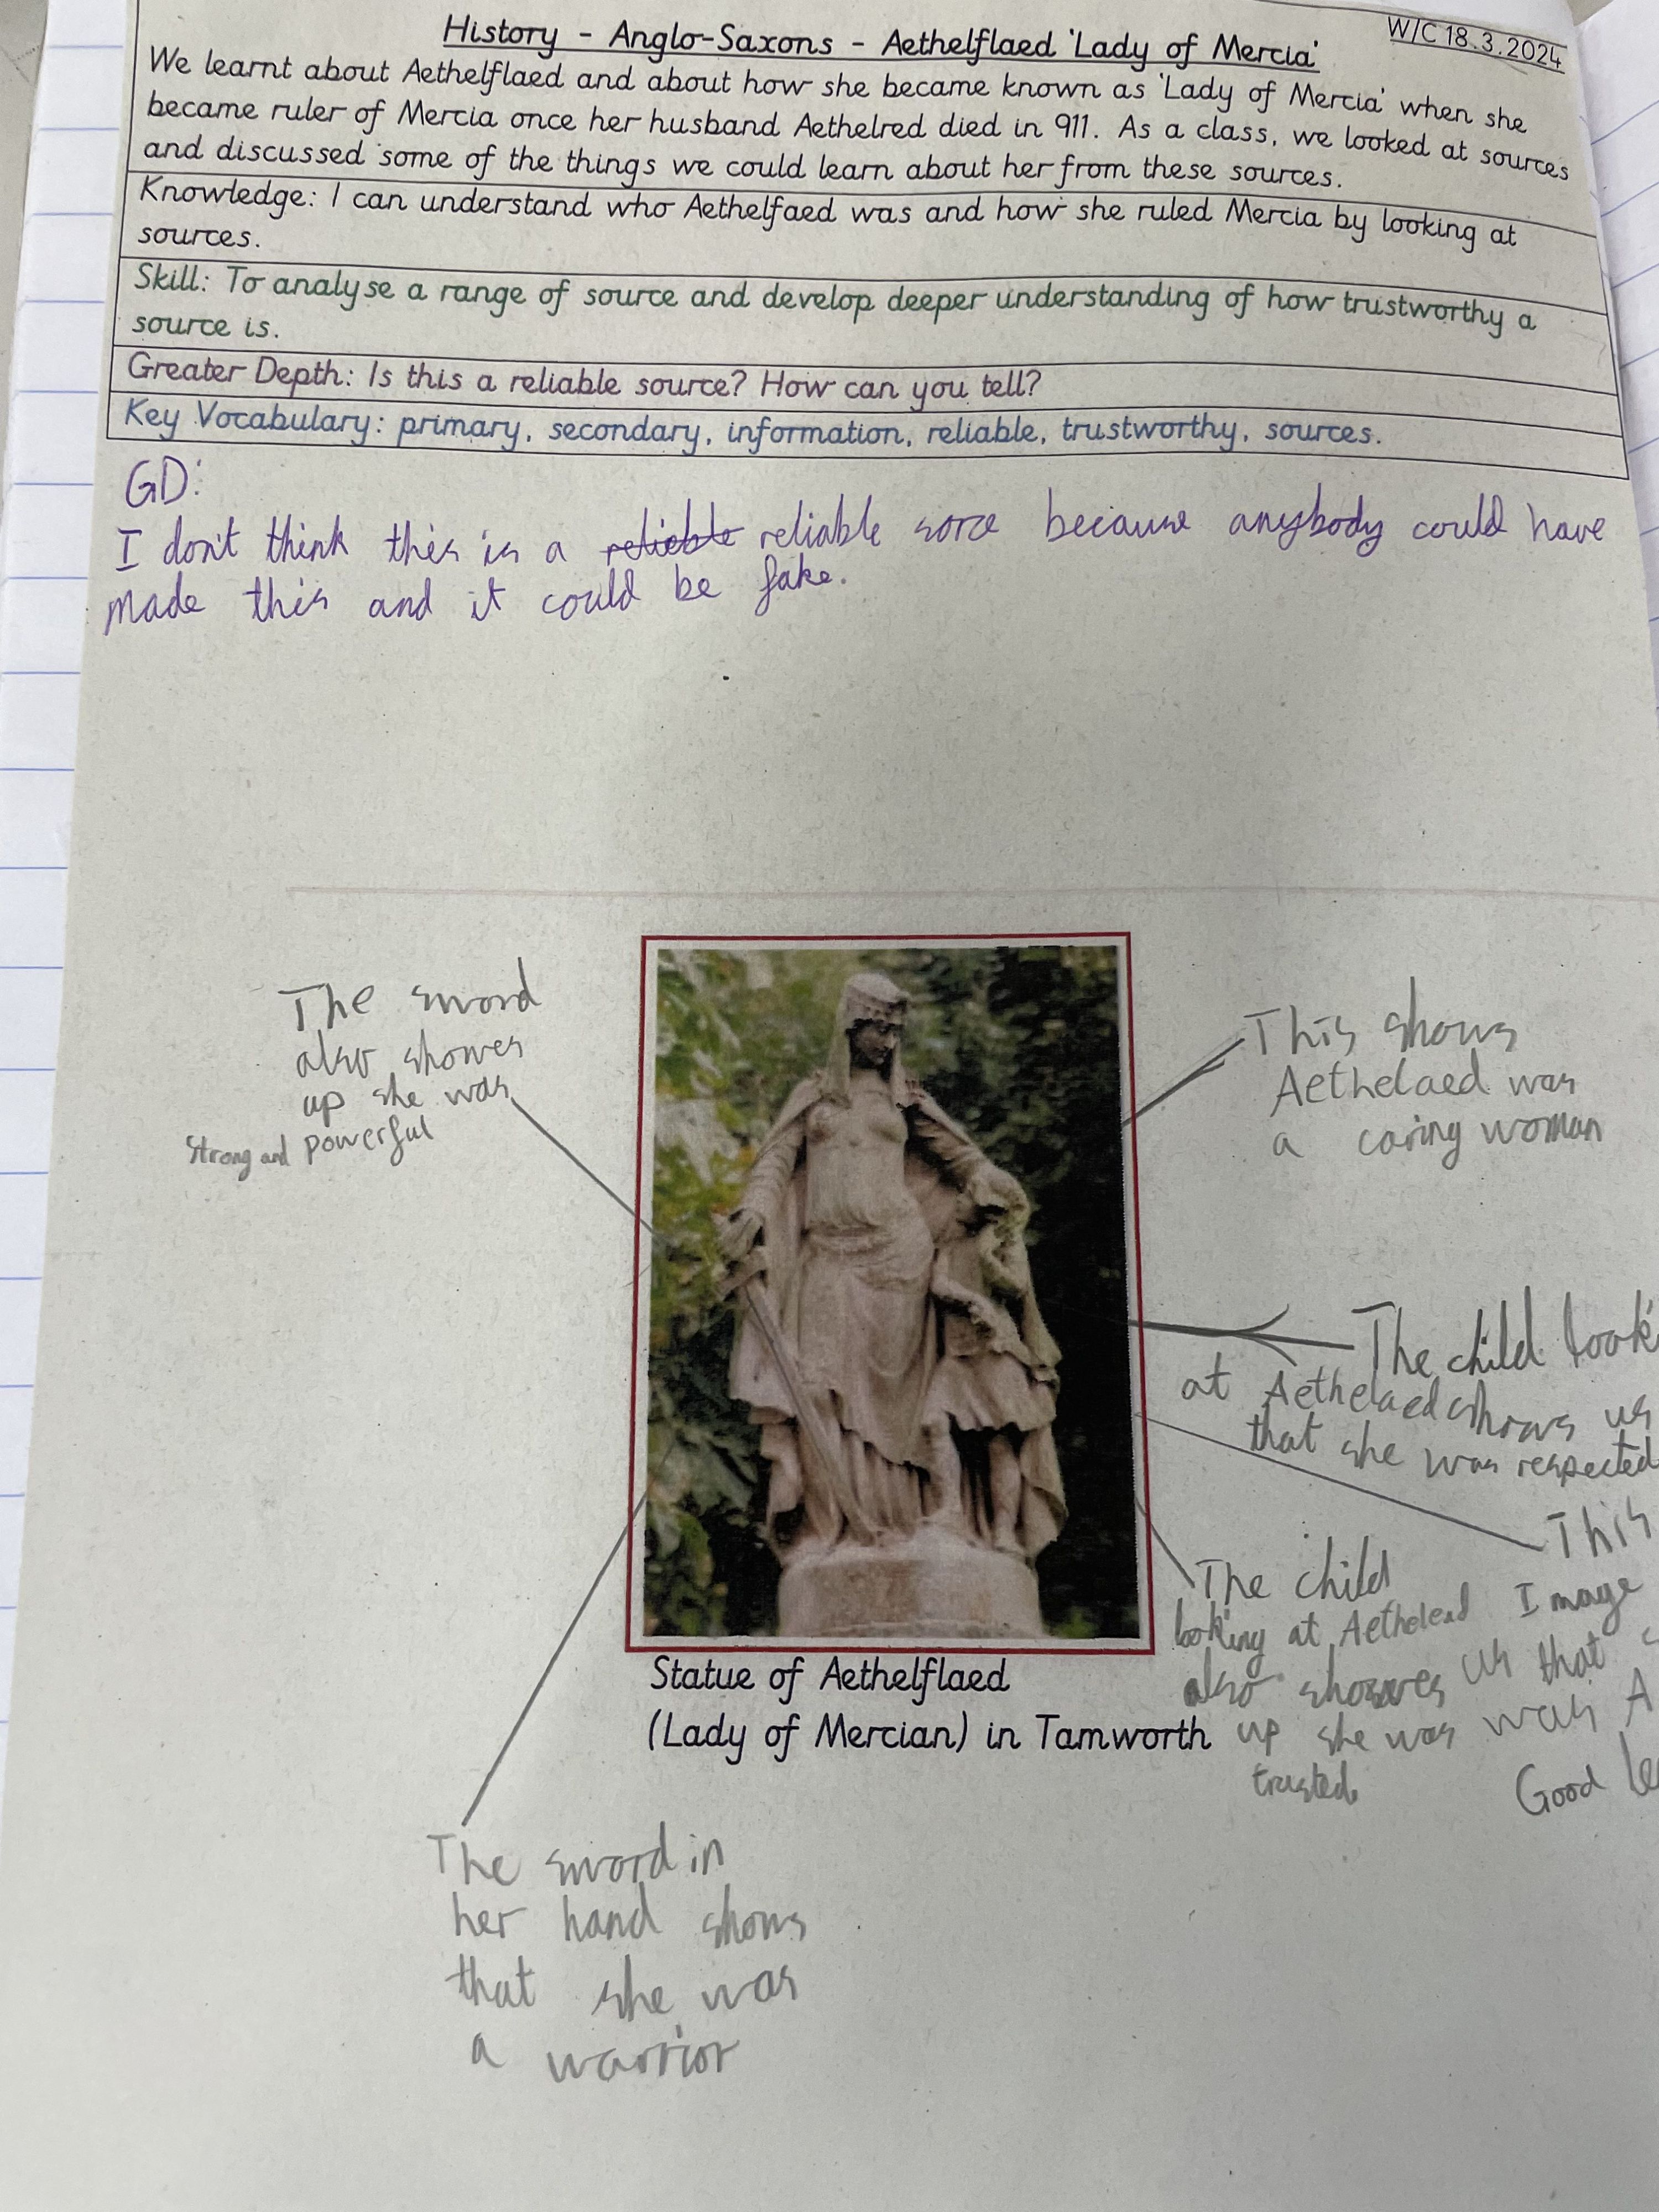 History - Anglo-Saxons - Aethelflaed 'Lady of Mercia'
W/C 18.3.2024
We learnt about Aethelflaed and about how she became known as 'Lady of Mercia' when she
became ruler of Mercia once her husband Aethelred died in 911. As a class, we looked at sources
and discussed some of the things we could learn about her from these sources.
Knowledge: I can understand who Aethelfaed was and how she ruled Mercia by looking at
sources.
Skill: To analyse a range of source and develop deeper understanding of how trustworthy a
source is.
Greater Depth: Is this a reliable source? How can you tell?
Key Vocabulary: primary, secondary, information, reliable, trustworthy, sources.
GD:
I don't think this is a relieble reliable sorce because anybody could have
made this and it could be fake.
The sword
also showes
up she was
Strong and powerful
This shows
Aethelaed was
a caring woman
The child look
at Aethelaed shows us
that she was respected
This
Image
us that
was A
Good
The child
looking at Aethelead
also showes
up she was
trusted
Statue of Aethelflaed
(Lady of Mercian) in Tamworth
The sword in
her hand shows
that she was
a warrior